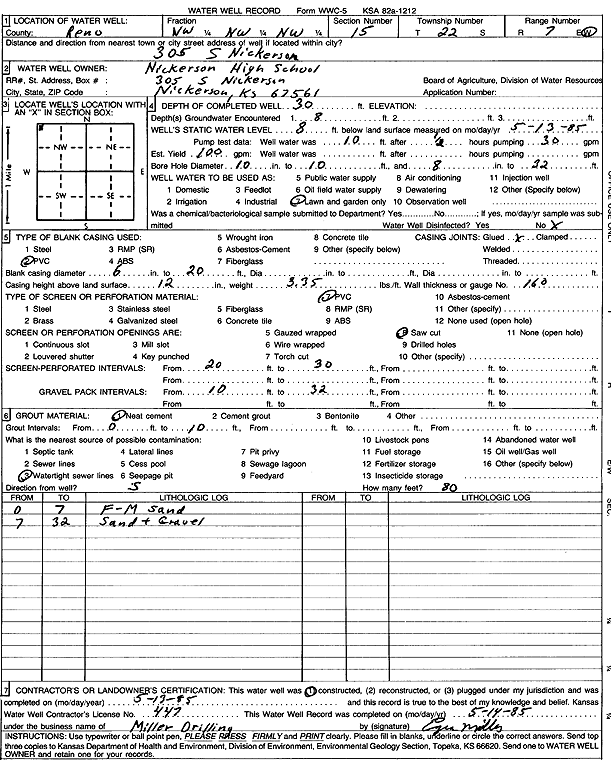 WATER WELL RECORD Form WWC-5 KSA 82a-1212
1 LOCATION OF WATER WELL: Fraction Section Number Township Number Range Number
County: Reno NW ¼ NW ¼ NW ¼ 15 T 22 S R 7 E/W
Distance and direction from nearest town or city street address of well if located within city?
305 S Nickerson
2 WATER WELL OWNER: Nickerson High School
RR#, St. Address, Box # : 305 S Nickerson Board of Agriculture, Division of Water Resources
City, State, ZIP Code : Nickerson, Ks 67561 Application Number:
3 LOCATE WELL'S LOCATION WITH AN "X" IN SECTION BOX:
N
NW NE
W E
SW SE
S
1 Mile
4 DEPTH OF COMPLETED WELL 30 ft. ELEVATION:
Depth(s) Groundwater Encountered 1. 8 ft. 2. ft. 3. ft.
WELL'S STATIC WATER LEVEL 8 ft. below land surface measured on mo/day/yr 5-13-85
Pump test data: Well water was 10 ft. after ½ hours pumping 30 gpm
Est. Yield 100 gpm: Well water was ft. after hours pumping gpm
Bore Hole Diameter 10 in. to 10 ft., and 8 in. to 32 ft.
WELL WATER TO BE USED AS: 5 Public water supply 8 Air conditioning 11 Injection well
1 Domestic 3 Feedlot 6 Oil field water supply 9 Dewatering 12 Other (Specify below)
2 Irrigation 4 Industrial 7 Lawn and garden only 10 Observation well
Was a chemical/bacteriological sample submitted to Department? Yes No ; If yes, mo/day/yr sample was sub-
mitted Water Well Disinfected? Yes No X
5 TYPE OF BLANK CASING USED: 5 Wrought iron 8 Concrete tile CASING JOINTS: Glued X Clamped
1 Steel 3 RMP (SR) 6 Asbestos-Cement 9 Other (specify below) Welded
2 PVC 4 ABS 7 Fiberglass Threaded
Blank casing diameter 6 in. to 20 ft., Dia in. to ft., Dia in. to ft.
Casing height above land surface 12 in., weight 3.35 lbs./ft. Wall thickness or gauge No. 160
TYPE OF SCREEN OR PERFORATION MATERIAL: 7 PVC 10 Asbestos-cement
1 Steel 3 Stainless steel 5 Fiberglass 8 RMP (SR) 11 Other (specify)
2 Brass 4 Galvanized steel 6 Concrete tile 9 ABS 12 None used (open hole)
SCREEN OR PERFORATION OPENINGS ARE: 5 Gauzed wrapped 8 Saw cut 11 None (open hole)
1 Continuous slot 3 Mill slot 6 Wire wrapped 9 Drilled holes
2 Louvered shutter 4 Key punched 7 Torch cut 10 Other (specify)
SCREEN-PERFORATED INTERVALS: From 20 ft. to 30 ft., From ft. to ft.
From ft. to ft., From ft. to ft.
GRAVEL PACK INTERVALS: From 10 ft. to 32 ft., From ft. to ft.
From ft. to ft., From ft. to ft.
6 GROUT MATERIAL: 1 Neat cement 2 Cement grout 3 Bentonite 4 Other
Grout Intervals: From 0 ft. to 10 ft., From ft. to ft., From ft. to ft.
What is the nearest source of possible contamination: 10 Livestock pens 14 Abandoned water well
1 Septic tank 4 Lateral lines 7 Pit privy 11 Fuel storage 15 Oil well/Gas well
2 Sewer lines 5 Cess pool 8 Sewage lagoon 12 Fertilizer storage 16 Other (specify below)
3 Watertight sewer lines 6 Seepage pit 9 Feedyard 13 Insecticide storage
Direction from well? S How many feet? 80
FROM TO LITHOLOGIC LOG FROM TO LITHOLOGIC LOG
0 7 F-M Sand
7 32 Sand + Gravel
7 CONTRACTOR'S OR LANDOWNER'S CERTIFICATION: This water well was (1) constructed, (2) reconstructed, or (3) plugged under my jurisdiction and was
completed on (mo/day/year) 5-13-85 and this record is true to the best of my knowledge and belief. Kansas
Water Well Contractor's License No. 447 This Water Well Record was completed on (mo/day/yr) 5-14-85
under the business name of Miller Drilling by (signature)
INSTRUCTIONS: Use typewriter or ball point pen, PLEASE PRESS FIRMLY and PRINT clearly. Please fill in blanks, underline or circle the correct answers. Send top
three copies to Kansas Department of Health and Environment, Division of Environment, Environmental Geology Section, Topeka, KS 66620. Send one to WATER WELL
OWNER and retain one for your records.